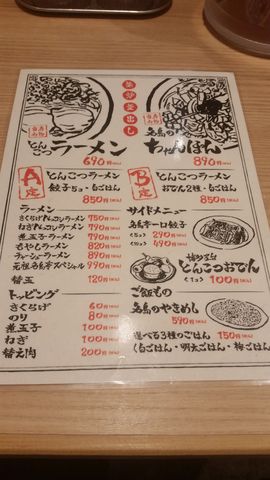 釜炊き出し
当店名物
とんこつラーメン
690円(税込)
当店名物
名島の
ちゃんぽん
890円(税込)
A定
とんこつラーメン
餃子5コ・白ごはん
850円(税込)
B定
とんこつラーメン
おでん2種・白ごはん
850円(税込)
ラーメン
きくらげ 750円(税込)
ねぎ 790円(税込)
煮玉子ラーメン 790円(税込)
もやしラーメン 820円(税込)
チャーシューラーメン 890円(税込)
元祖名島亭スペシャル 990円(税込)
替玉 120円(税込)
トッピング
きくらげ 60円(税込)
のり 80円(税込)
煮玉子 100円(税込)
ねぎ 100円(税込)
替え肉 200円(税込)
サイドメニュー
名島亭一口餃子
〈5コ〉 350円(税込)
とんこつおでん
〈1コ〉 100円(税込)
ご飯もの
名島のやきめし
590円(税込)
選べる3種のごはん 150円(税込)
(白ごはん・明太ごはん・梅ごはん)